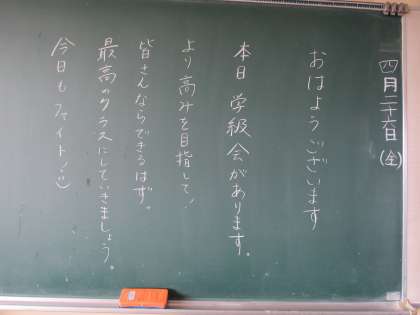 四月二十六日(金)
おはようございます
本日 学級会があります。
より高みを目指して!
皆さんならできるはず。
最高のクラスにしていきましょう。
今日もファイト!!